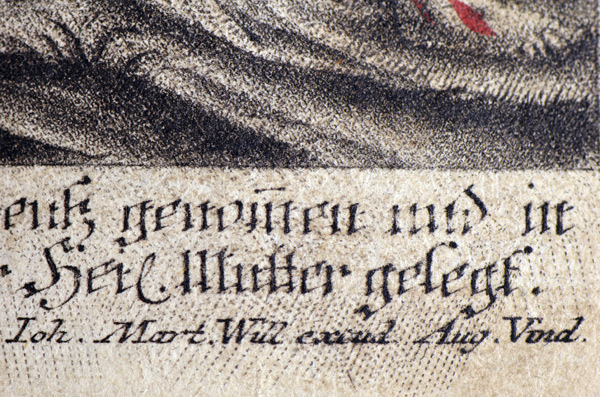 genom̅en und in
Heil. Mutter gelegt.
Joh. Mart. Will excud. Aug. Vind.